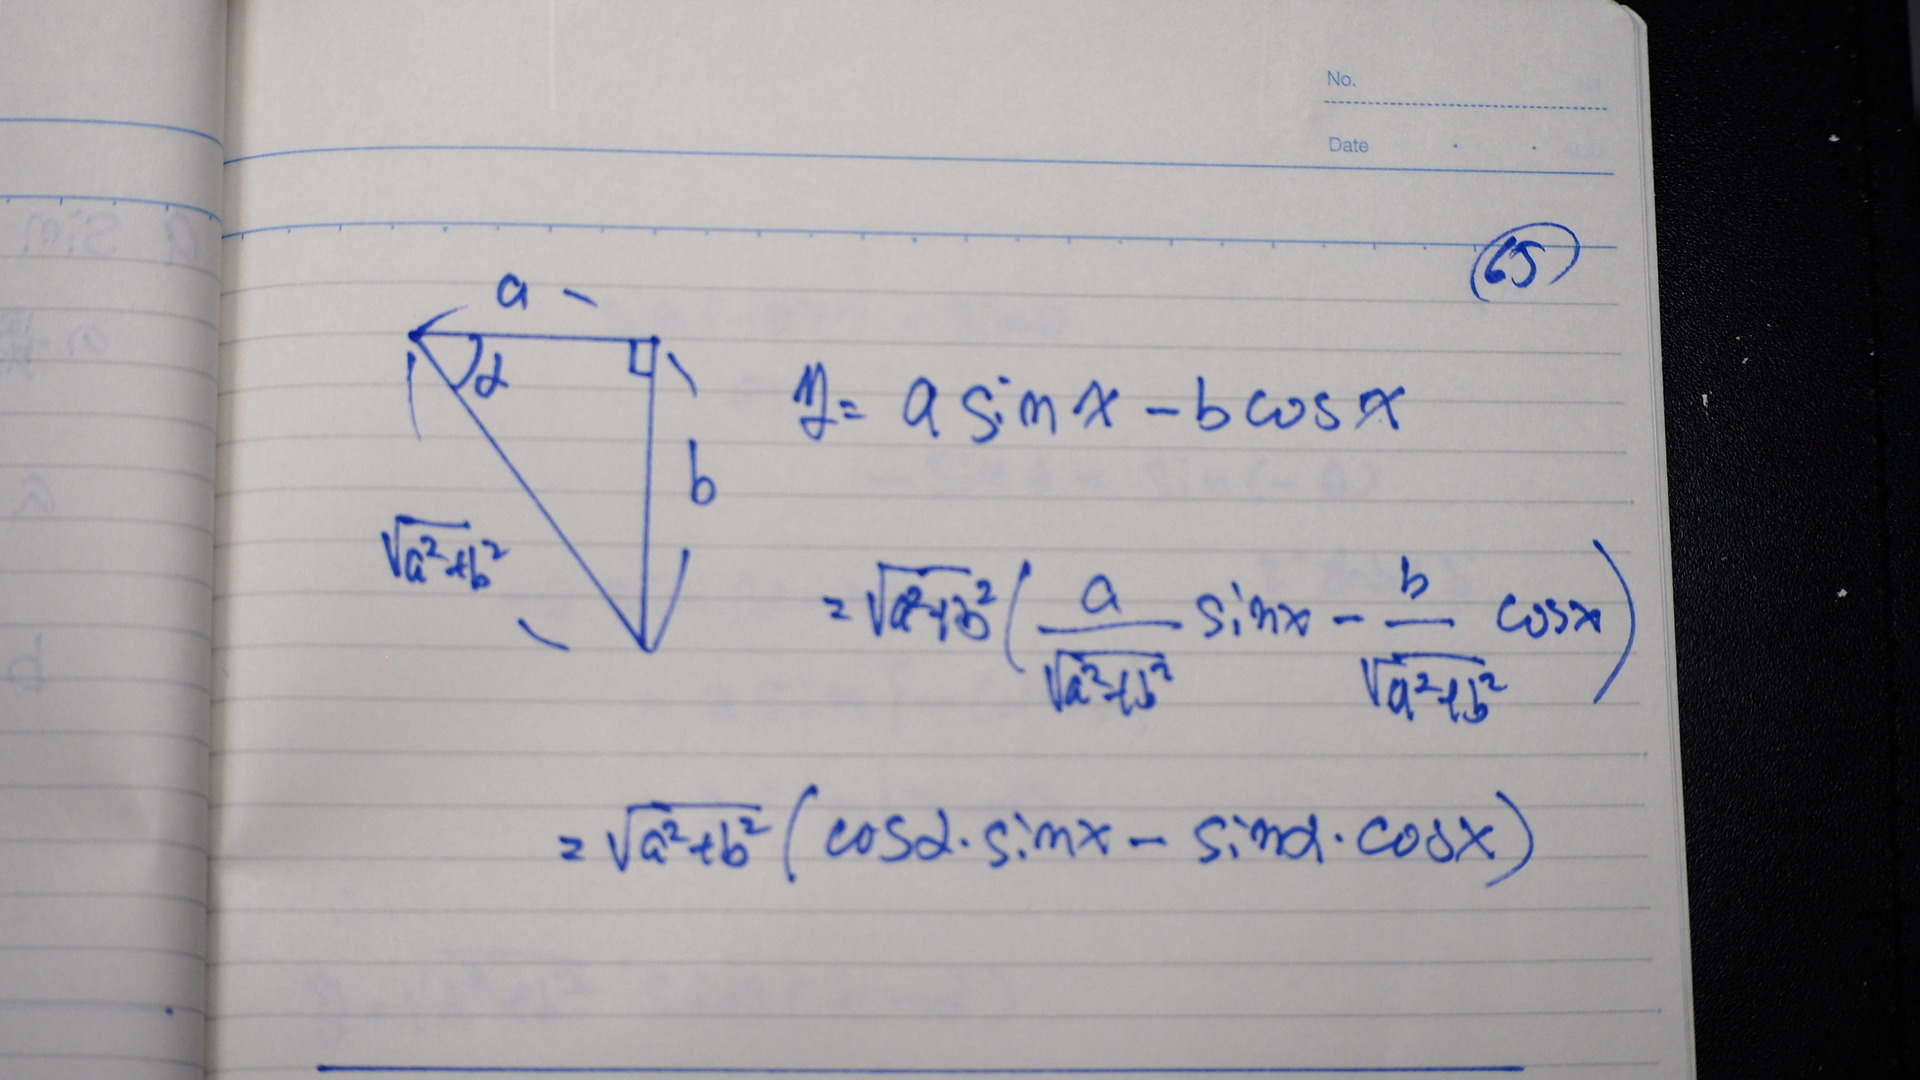 No.
Date
65
a
α
b
√a²+b²
y = a sin x - b cos x
= √a²+b² ( a/√a²+b² sin x - b/√a²+b² cos x )
= √a²+b² ( cos α · sin x - sin α · cos x )